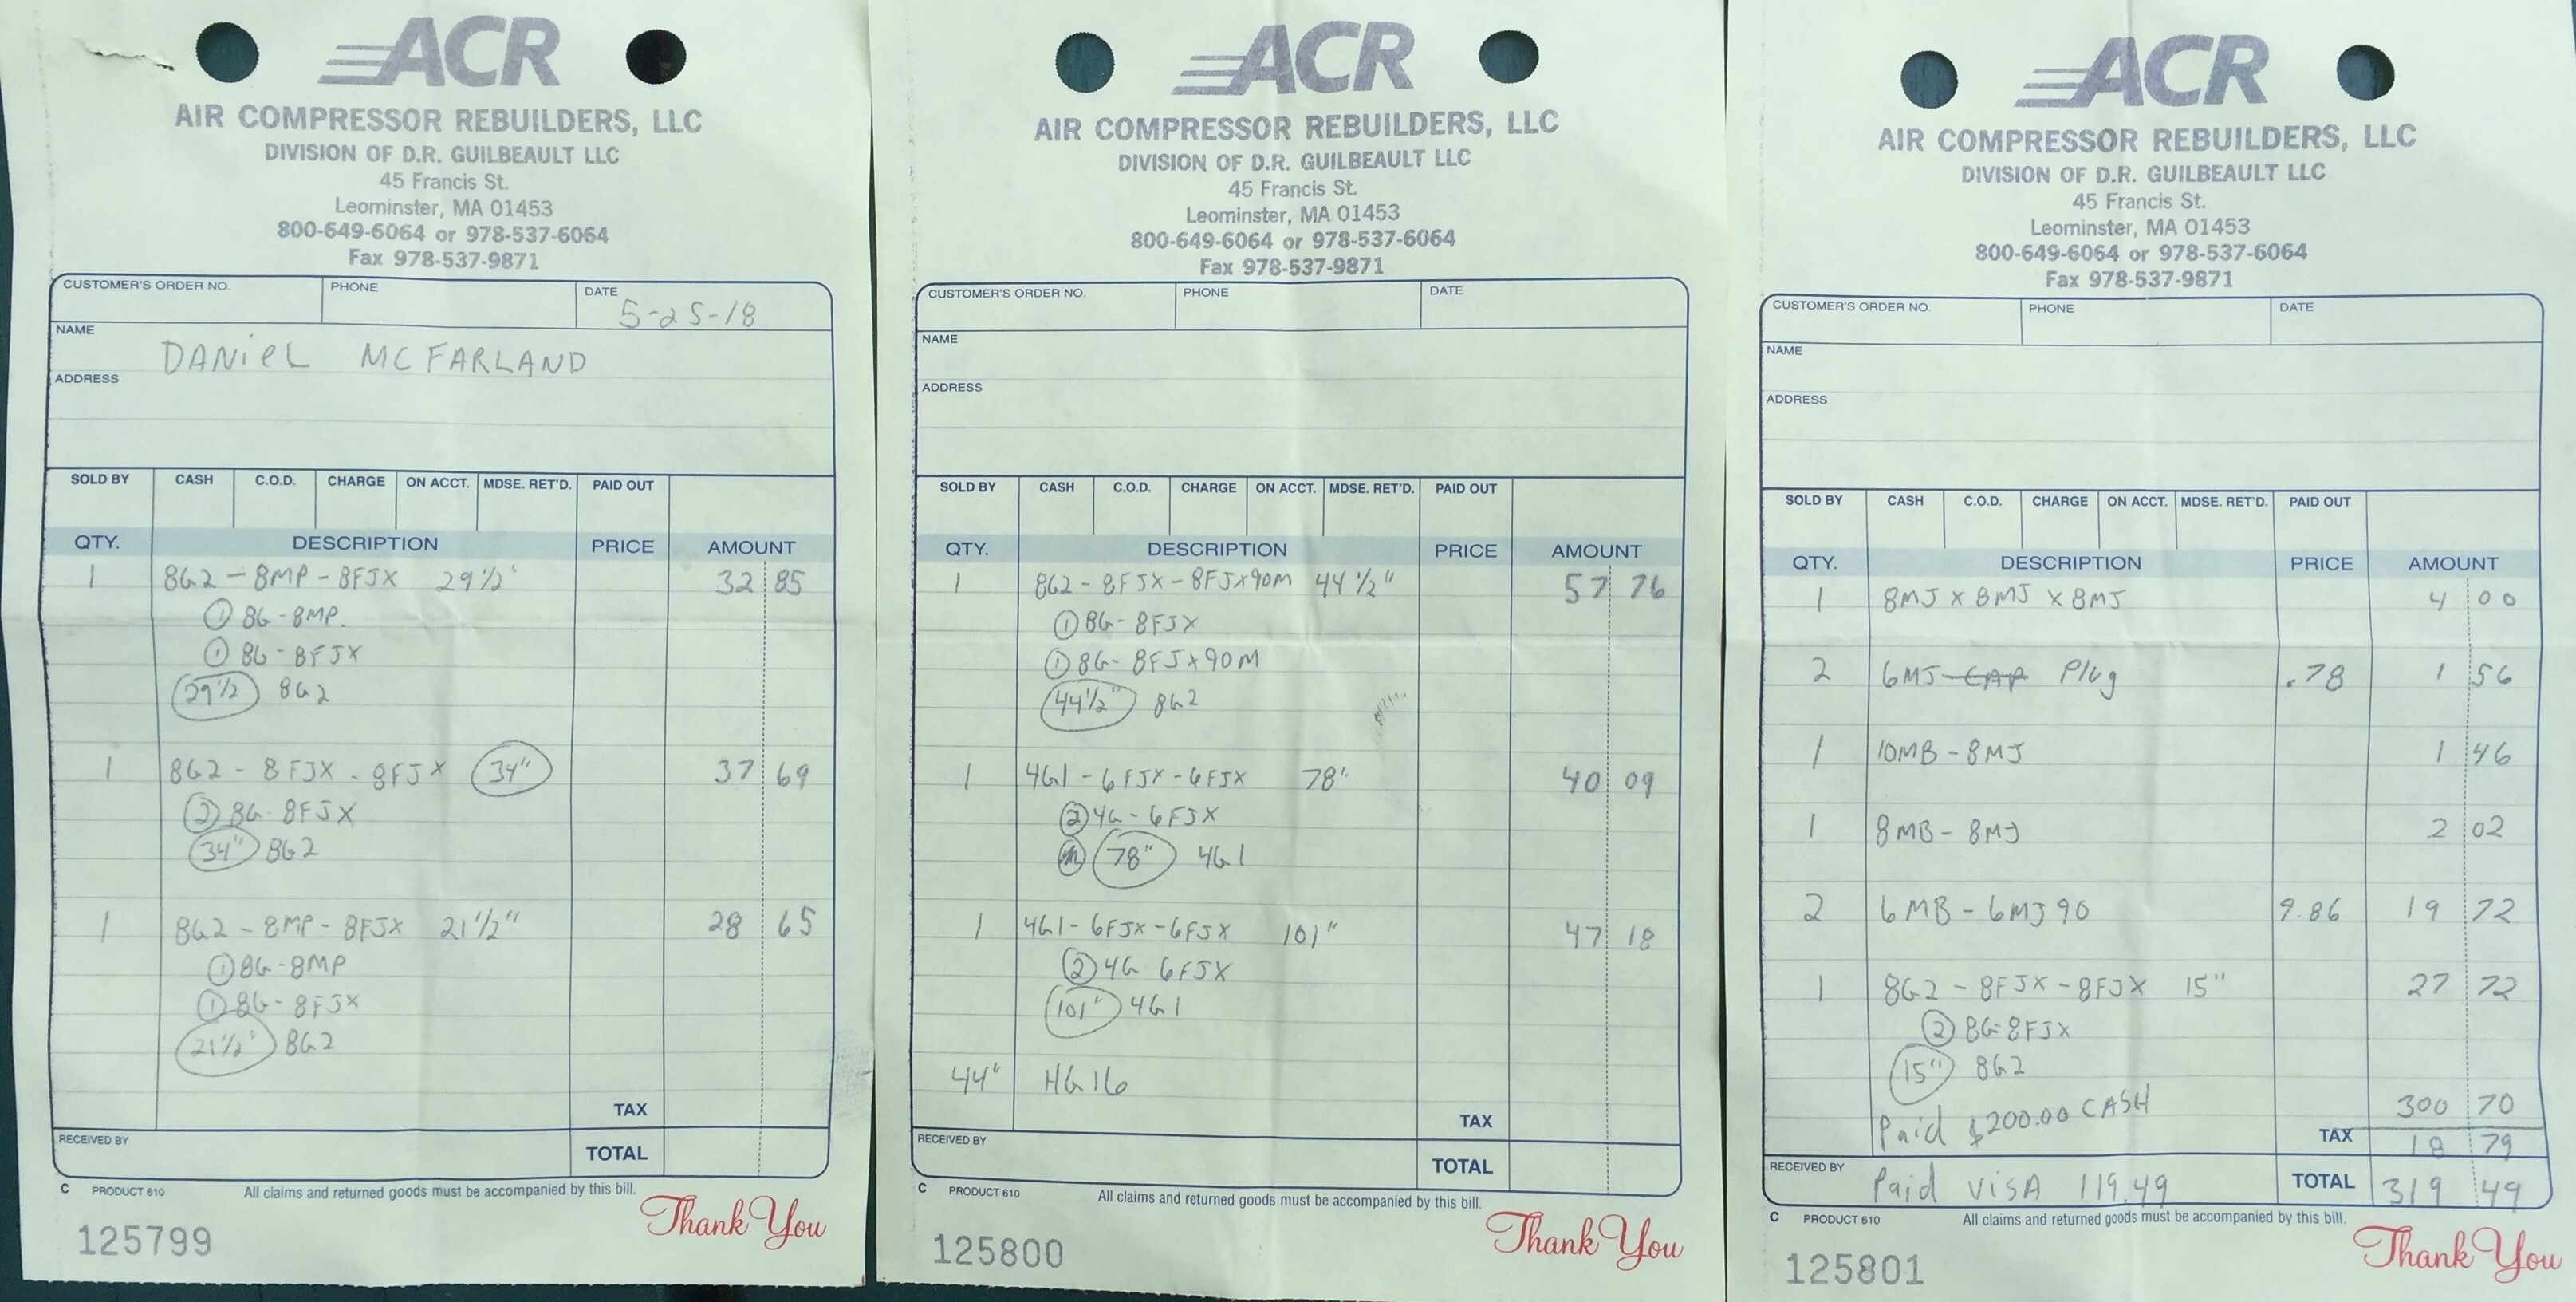 ACR
AIR COMPRESSOR REBUILDERS, LLC
DIVISION OF D.R. GUILBEAULT LLC
45 Francis St.
Leominster, MA 01453
800-649-6064 or 978-537-6064
Fax 978-537-9871
CUSTOMER'S ORDER NO. PHONE DATE 5-25-18
NAME DANIEL MCFARLAND
ADDRESS
SOLD BY CASH C.O.D. CHARGE ON ACCT. MDSE. RET'D. PAID OUT
QTY. DESCRIPTION PRICE AMOUNT
1 8G2-8MP-8FJX 29 1/2" 32 85
1 8G-8MP.
1 8G-8FJX
29 1/2 8G2
1 8G2-8FJX-8FJX 34" 37 69
2 8G-8FJX
34" 8G2
1 8G2-8MP-8FJX 21 1/2" 28 65
1 8G-8MP
1 8G-8FJX
21 1/2" 8G2
TAX
RECEIVED BY TOTAL
C PRODUCT 610 All claims and returned goods must be accompanied by this bill.
125799 Thank You
ACR
AIR COMPRESSOR REBUILDERS, LLC
DIVISION OF D.R. GUILBEAULT LLC
45 Francis St.
Leominster, MA 01453
800-649-6064 or 978-537-6064
Fax 978-537-9871
CUSTOMER'S ORDER NO. PHONE DATE
NAME
ADDRESS
SOLD BY CASH C.O.D. CHARGE ON ACCT. MDSE. RET'D. PAID OUT
QTY. DESCRIPTION PRICE AMOUNT
1 8G2-8FJX-8FJX90M 44 1/2" 57 76
1 8G-8FJX
1 8G-8FJX90M
44 1/2" 8G2
1 4G1-6FJX-6FJX 78" 40 09
2 4G-6FJX
78" 4G1
1 4G1-6FJX-6FJX 101" 47 18
2 4G 6FJX
101" 4G1
44" HG16
TAX
RECEIVED BY TOTAL
C PRODUCT 610 All claims and returned goods must be accompanied by this bill.
125800 Thank You
ACR
AIR COMPRESSOR REBUILDERS, LLC
DIVISION OF D.R. GUILBEAULT LLC
45 Francis St.
Leominster, MA 01453
800-649-6064 or 978-537-6064
Fax 978-537-9871
CUSTOMER'S ORDER NO. PHONE DATE
NAME
ADDRESS
SOLD BY CASH C.O.D. CHARGE ON ACCT. MDSE. RET'D. PAID OUT
QTY. DESCRIPTION PRICE AMOUNT
1 8MJ x 8MJ x 8MJ 4 00
2 6MJ CAP Plug .78 1 56
1 10MB-8MJ 1 46
1 8MB-8MJ 2 02
2 6MB-6MJ90 9.86 19 72
1 8G2-8FJX-8FJX 15" 27 72
2 8G-8FJX
15" 8G2
300 70
Paid $200.00 CASH
TAX 18 79
RECEIVED BY Paid VISA 119.49 TOTAL 319 49
C PRODUCT 610 All claims and returned goods must be accompanied by this bill.
125801 Thank You